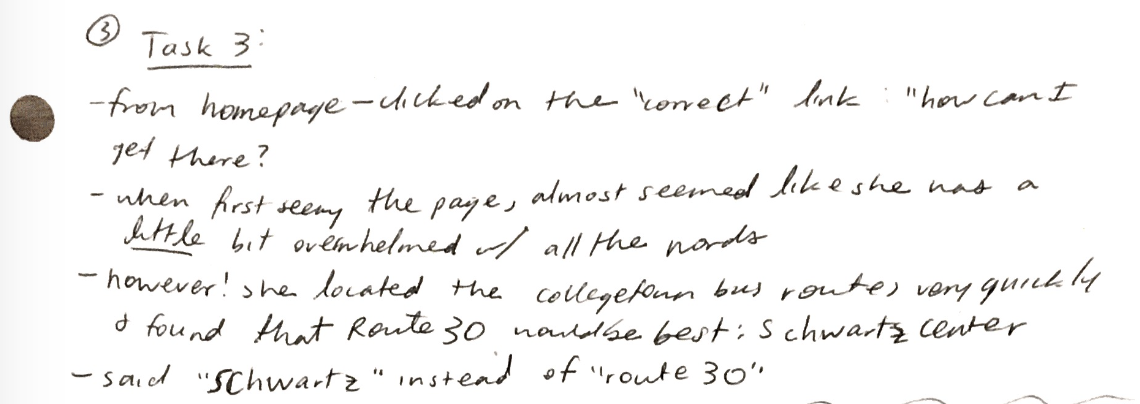 ③ Task 3:
- from homepage - clicked on the "correct" link : "how can I
get there?
- when first seeing the page, almost seemed like she was a
little bit overwhelmed w/ all the words
- however! she located the collegetown bus routes very quickly
& found that Route 30 would be best: Schwartz center
- said "Schwartz" instead of "route 30"